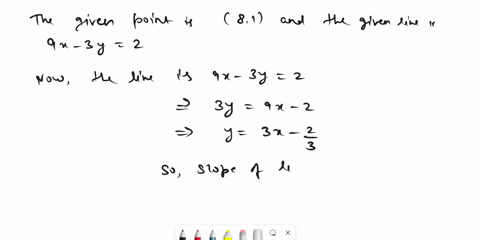 The given point is (8,1) and the given line is
9x-3y = 2
Now, the line is 9x-3y = 2
⇒ 3y = 9x-2
⇒ y = 3x - 2/3
So, slope of